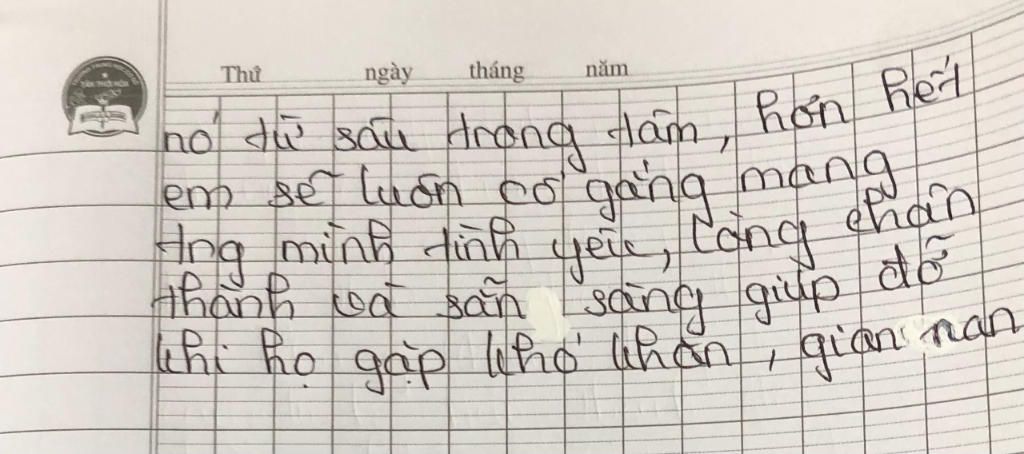 Thứ ngày tháng năm
nó từ sâu trong tâm, hơn hết
em sẽ luôn cố gắng mang
trng mình tình yêu, lòng chân
thành và sẵn sàng giúp đỡ
khi họ gặp khó khăn, gian nan